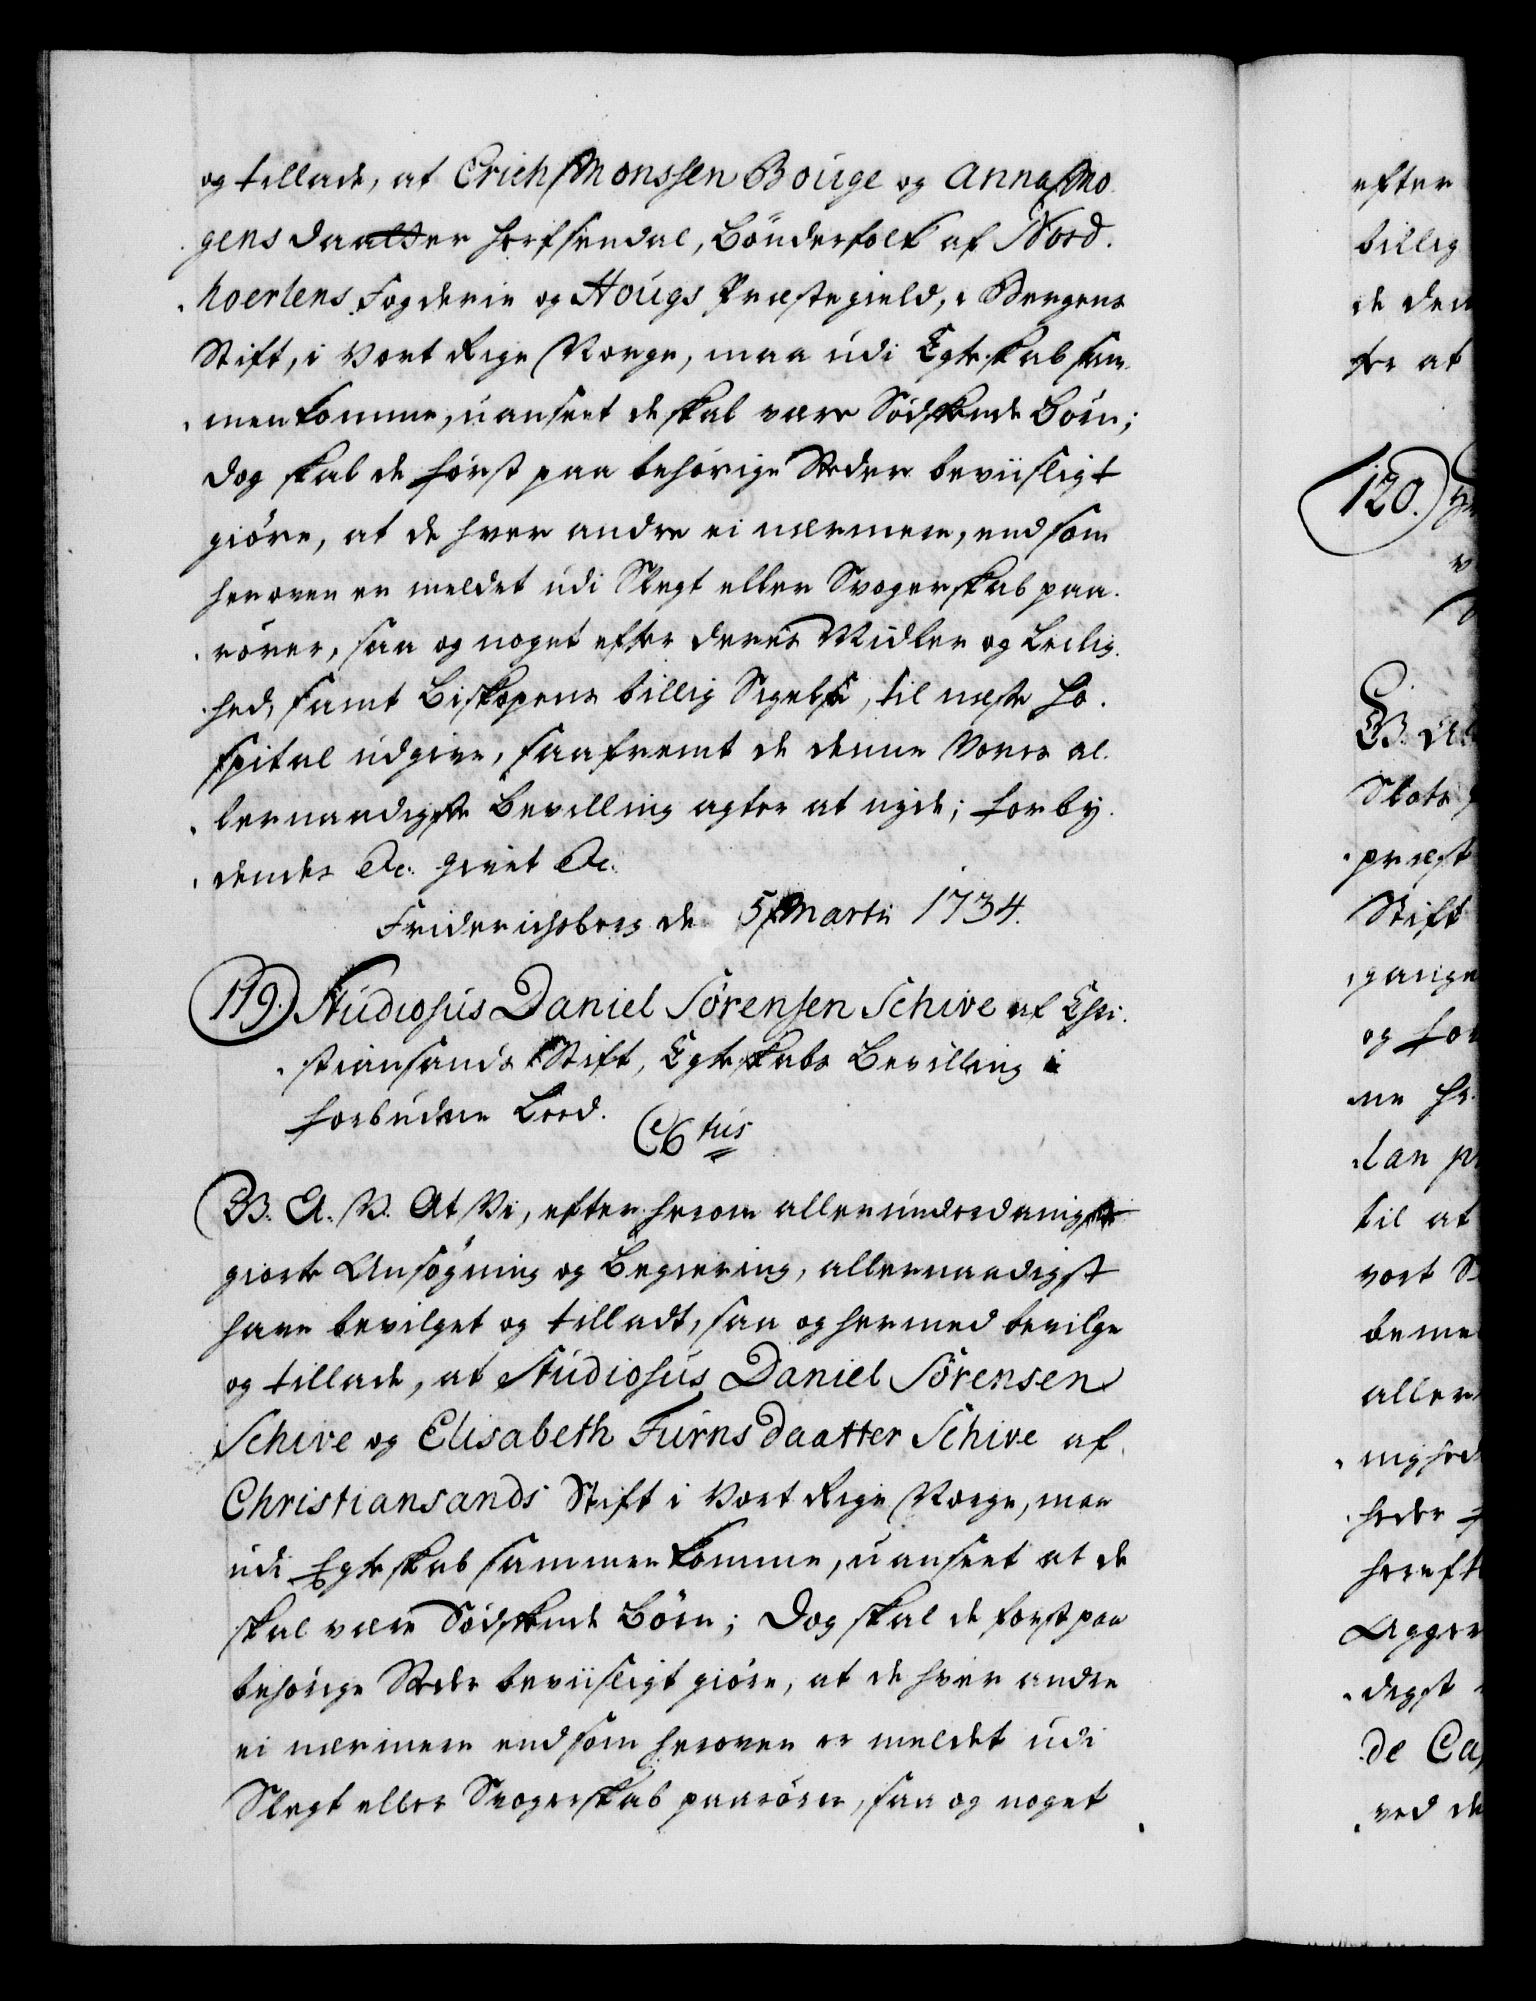 og tillade, at Erich Monssen Bouge og Anna Mo-
gens daatter Horssendal, Bönderfolk af Nord-
hoerlens Fogderie og Hougs Præstegield, i Bergens
Stift, i Vort Rige Norge, maa udi Egteskab sam-
menkomme, uanseet de skal være Södskende Börn;
dog skal de först paa behörige Steder beviisligt
giöre, at de hver andre ei nærmere, end som
heroven er meldet udi Slegt eller Svogerskab paa-
rörer, saa og noget efter deres Midler og Leilig-
hed, samt Biskopens billig Sigelse, til næste Ho-
spital udgive, saafremt de denne Vores al-
lernaadigste Bevilling agter at nyde; Forby-
dendes &c. Givet &c.
Friderichsberg de 5 Martii 1734.
119. Studiosus Daniel Sörensen Schive af Chri-
stiansands Stift, Egteskabs Bevilling i
forbudne Leed.
C 6tus
G. A. V. At Vi, efter herom allerunderdanigst
giorte Ansögning og Begiering, allernaadigst
have bevilget og tilladt, saa og hermed bevilge
og tillade, at Studiosus Daniel Sörensen
Schive og Elisabeth Furns daatter Schive af
Christiansands Stift i Vort Rige Norge, maa
udi Egteskab sammenkomme, uanseet at de
skal være Södskende Börn; Dog skal de först paa
behörige Steder beviisligt giöre, at de hver andre
ei nærmere end som heroven er meldet udi
Slegt eller Svogerskab paarörer, saa og noget
efter
billig
de den
ter at
120.
B. A
Slots
præst
Stift
gange
og for
ne He
lan p
til at
vort S
beme
aller
nighed
heder
hereft
Agger
digst
de Ca
ved de